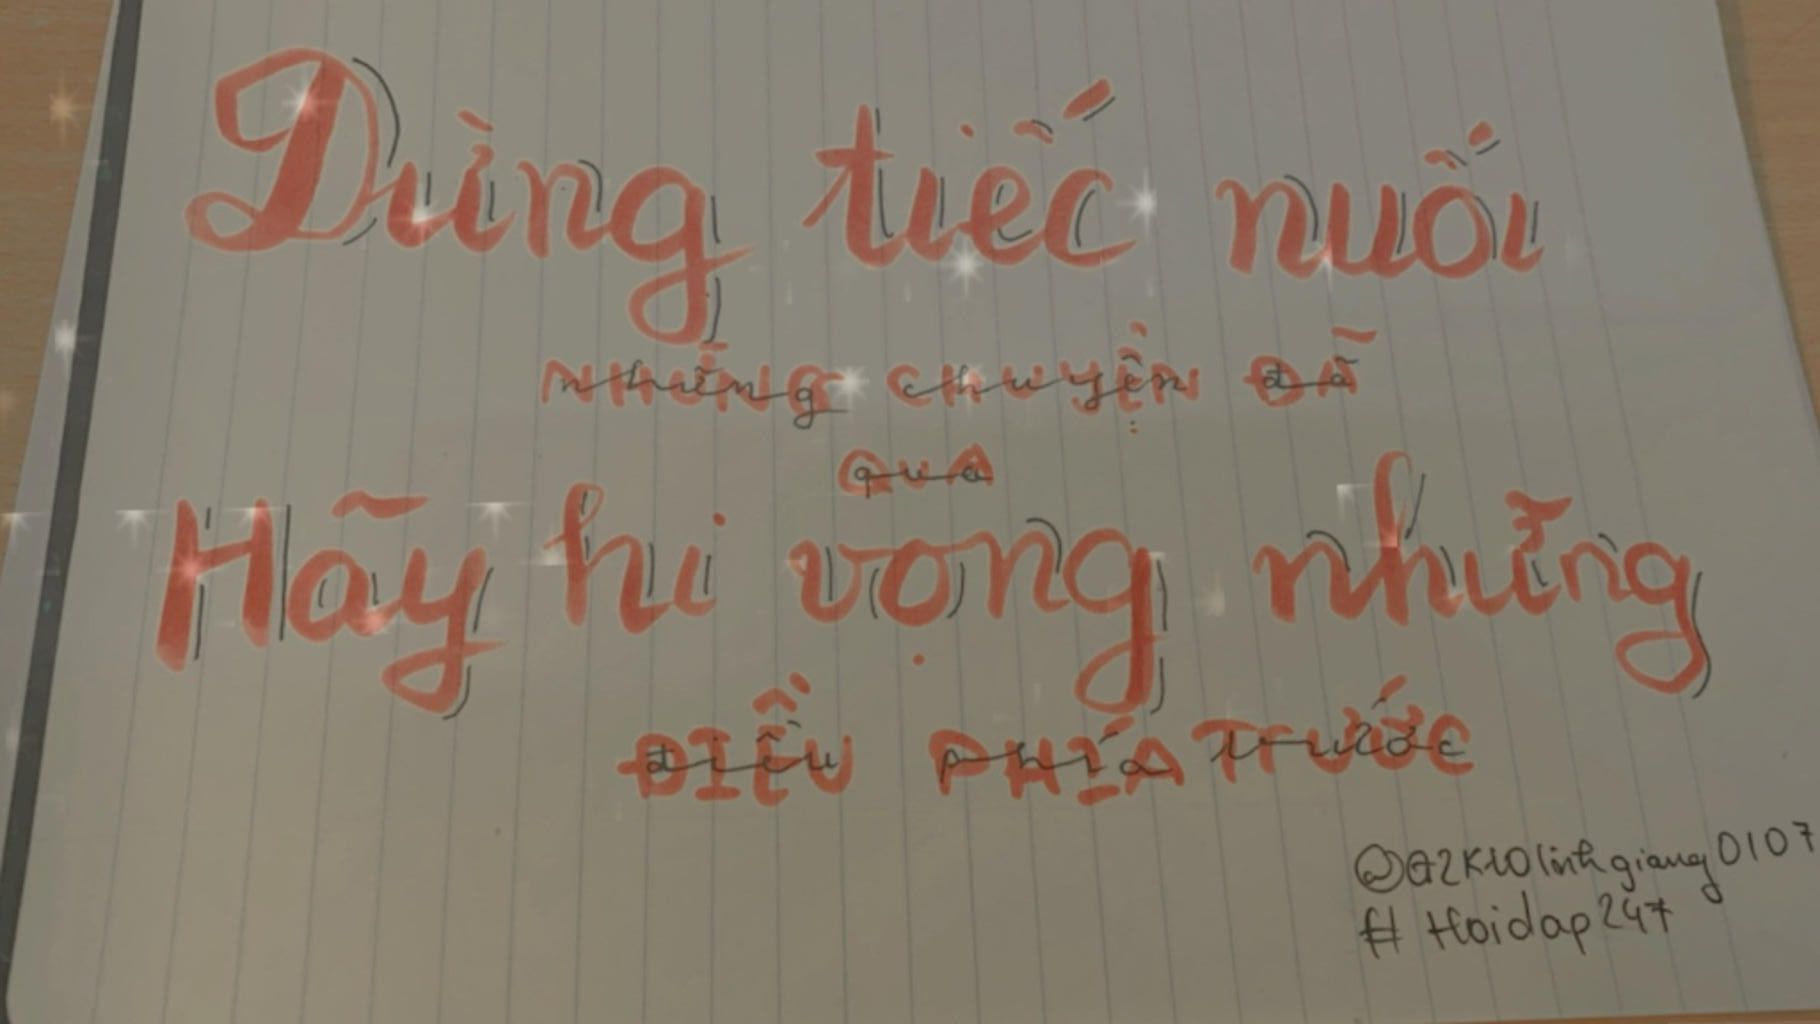 Dừng tiếc nuối
NHỮNG CHUYỆN ĐÃ
QUA
Hãy hi vọng những
ĐIỀU PHÍA TRƯỚC
@G2K10linhgiang0107
# Hoidap247